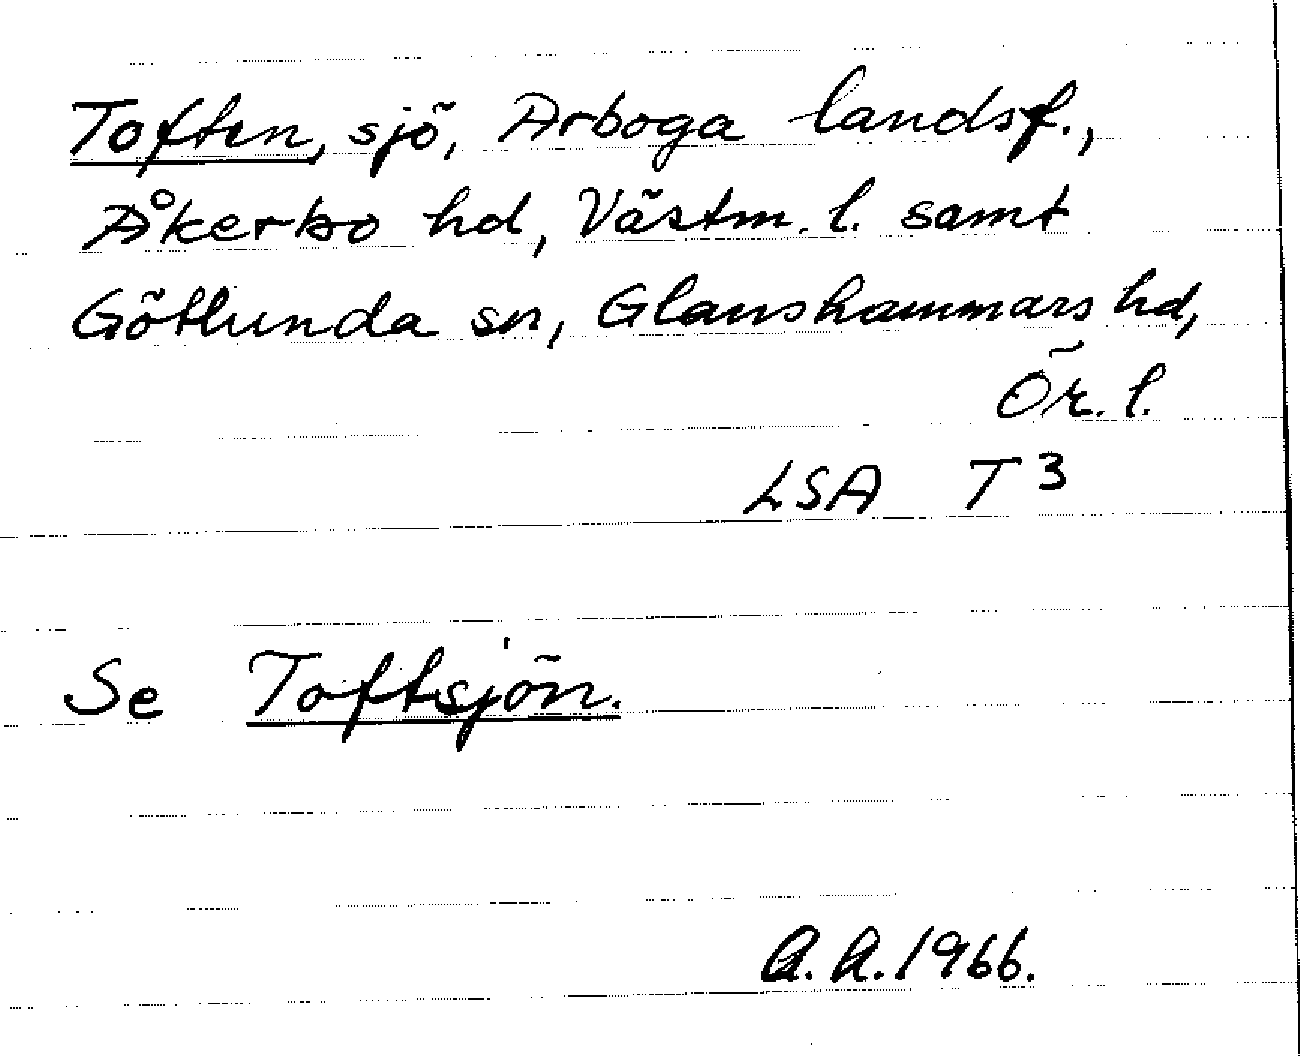 Toften, sjö, Arboga landsf.,
Åkerbo hd, Västm. l. samt
Götlunda sn, Glanshammars hd,
Ör. l.
LSA T 3
Se Toftsjön.
A.A. 1966.